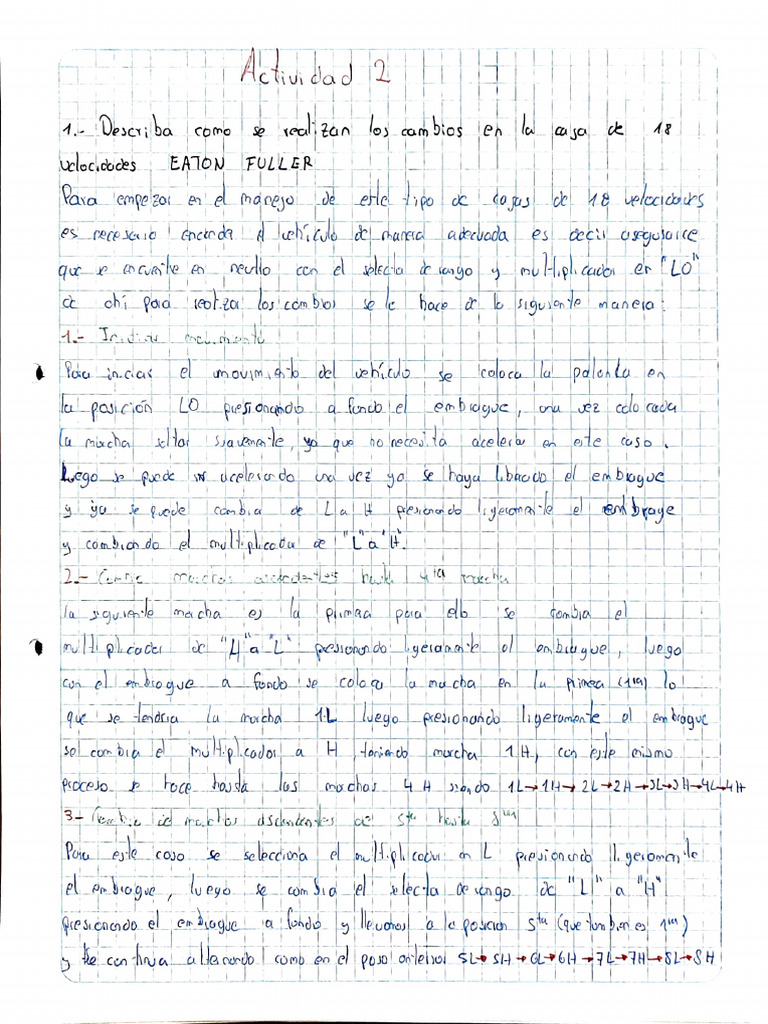 Actividad 2
1.- Describa como se realizan los cambios en la caja de 18
velocidades EATON FULLER
Para empezar en el manejo de este tipo de cajas de 18 velocidades
es necesario encender el vehículo de manera adecuada es decir asegurarce
que se encuentre en neutro con el selector de rango y multiplicador en "LO"
de ahí para realizar los cambios se le hace de la siguiente manera:
1.- Iniciar movimiento
Para iniciar el movimiento del vehículo se coloca la palanca en
la posición LO presionando a fondo el embrague, una vez colocada
la marcha soltar suavemente, ya que no necesita acelerar en este caso.
Luego se puede ir acelerando una vez ya se haya liberado el embrague
y ya se puede cambiar de L a H presionando ligeramente el embrague
y cambiando el multiplicador de "L" a "H".
2.- marchas ascendentes hasta 4ta marcha
la siguiente marcha es la primera para ello se cambia el
multiplicador de "H" a "L" presionando ligeramente el embrague, luego
con el embrague a fondo se coloca la marcha en la primera (1ra) lo
que se tendria la marcha 1L luego presionando ligeramente el embrague
se cambia el multiplicador a H, teniendo marcha 1H, con este mismo
proceso se hace hasta las marchas 4H siendo 1L→1H→2L→2H→3L→3H→4L→4H
3.- Cambio de marchas ascendentes de 5ta hasta 8va
Para este caso se selecciona el multiplicador en L presionando ligeramente
el embrague, luego se cambia el selector de rango de "L" a "H"
presionando el embrague a fondo y llevamos a la posicion 5ta (que tambien es 1ra)
y se continua alternando como en el paso anterior 5L→5H→6L→6H→7L→7H→8L→8H